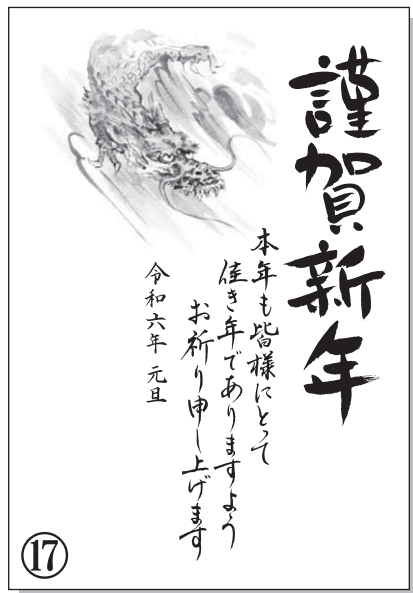 謹賀新年
本年も皆様にとって
佳き年でありますよう
お祈り申し上げます
令和六年 元旦
⑰